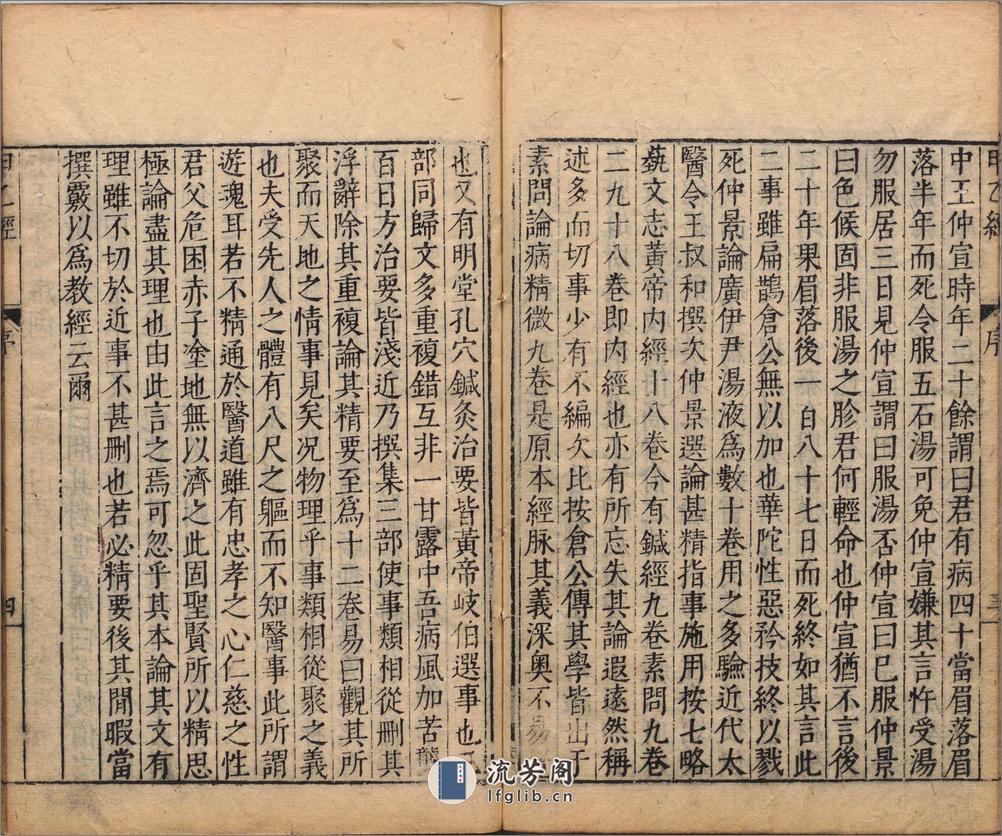 甲乙經
序
三
中王仲宣時年二十餘謂曰君有病四十當眉落眉
落半年而死令服五石湯可免仲宣嫌其言忤受湯
勿服居三日見仲宣謂曰服湯否仲宣曰已服仲景
曰色候固非服湯之胗君何輕命也仲宣猶不言後
二十年果眉落後一百八十七日而死終如其言此
二事雖扁鵲倉公無以加也華陀性惡矜技終以戮
死仲景論廣伊尹湯液爲數十卷用之多驗近代太
醫令王叔和撰次仲景選論甚精指事施用按七略
蓺文志黃帝内經十八卷今有鍼經九卷素問九卷
二九十八卷即内經也亦有所忘失其論遐遠然稱
述多而切事少有不編次比按倉公傳其學皆出于
素問論病精微九卷是原本經脉其義深奥不易
也又有明堂孔穴鍼灸治要皆黃帝岐伯選事也
部同歸文多重複錯互非一甘露中吾病風加苦聾
百日方治要皆淺近乃撰集三部使事類相從刪其
浮辭除其重複論其精要至爲十二卷易曰觀其所
聚而天地之情事見矣况物理乎事類相從聚之義
也夫受先人之體有八尺之軀而不知醫事此所謂
遊魂耳若不精通於醫道雖有忠孝之心仁慈之性
君父危困赤子塗地無以濟之此固聖賢所以精思
極論盡其理也由此言之焉可忽乎其本論其文有
理雖不切於近事不甚刪也若必精要後其閒暇當
撰覈以爲教經云爾
甲乙經
序
四
流芳阁
lfglib.cn